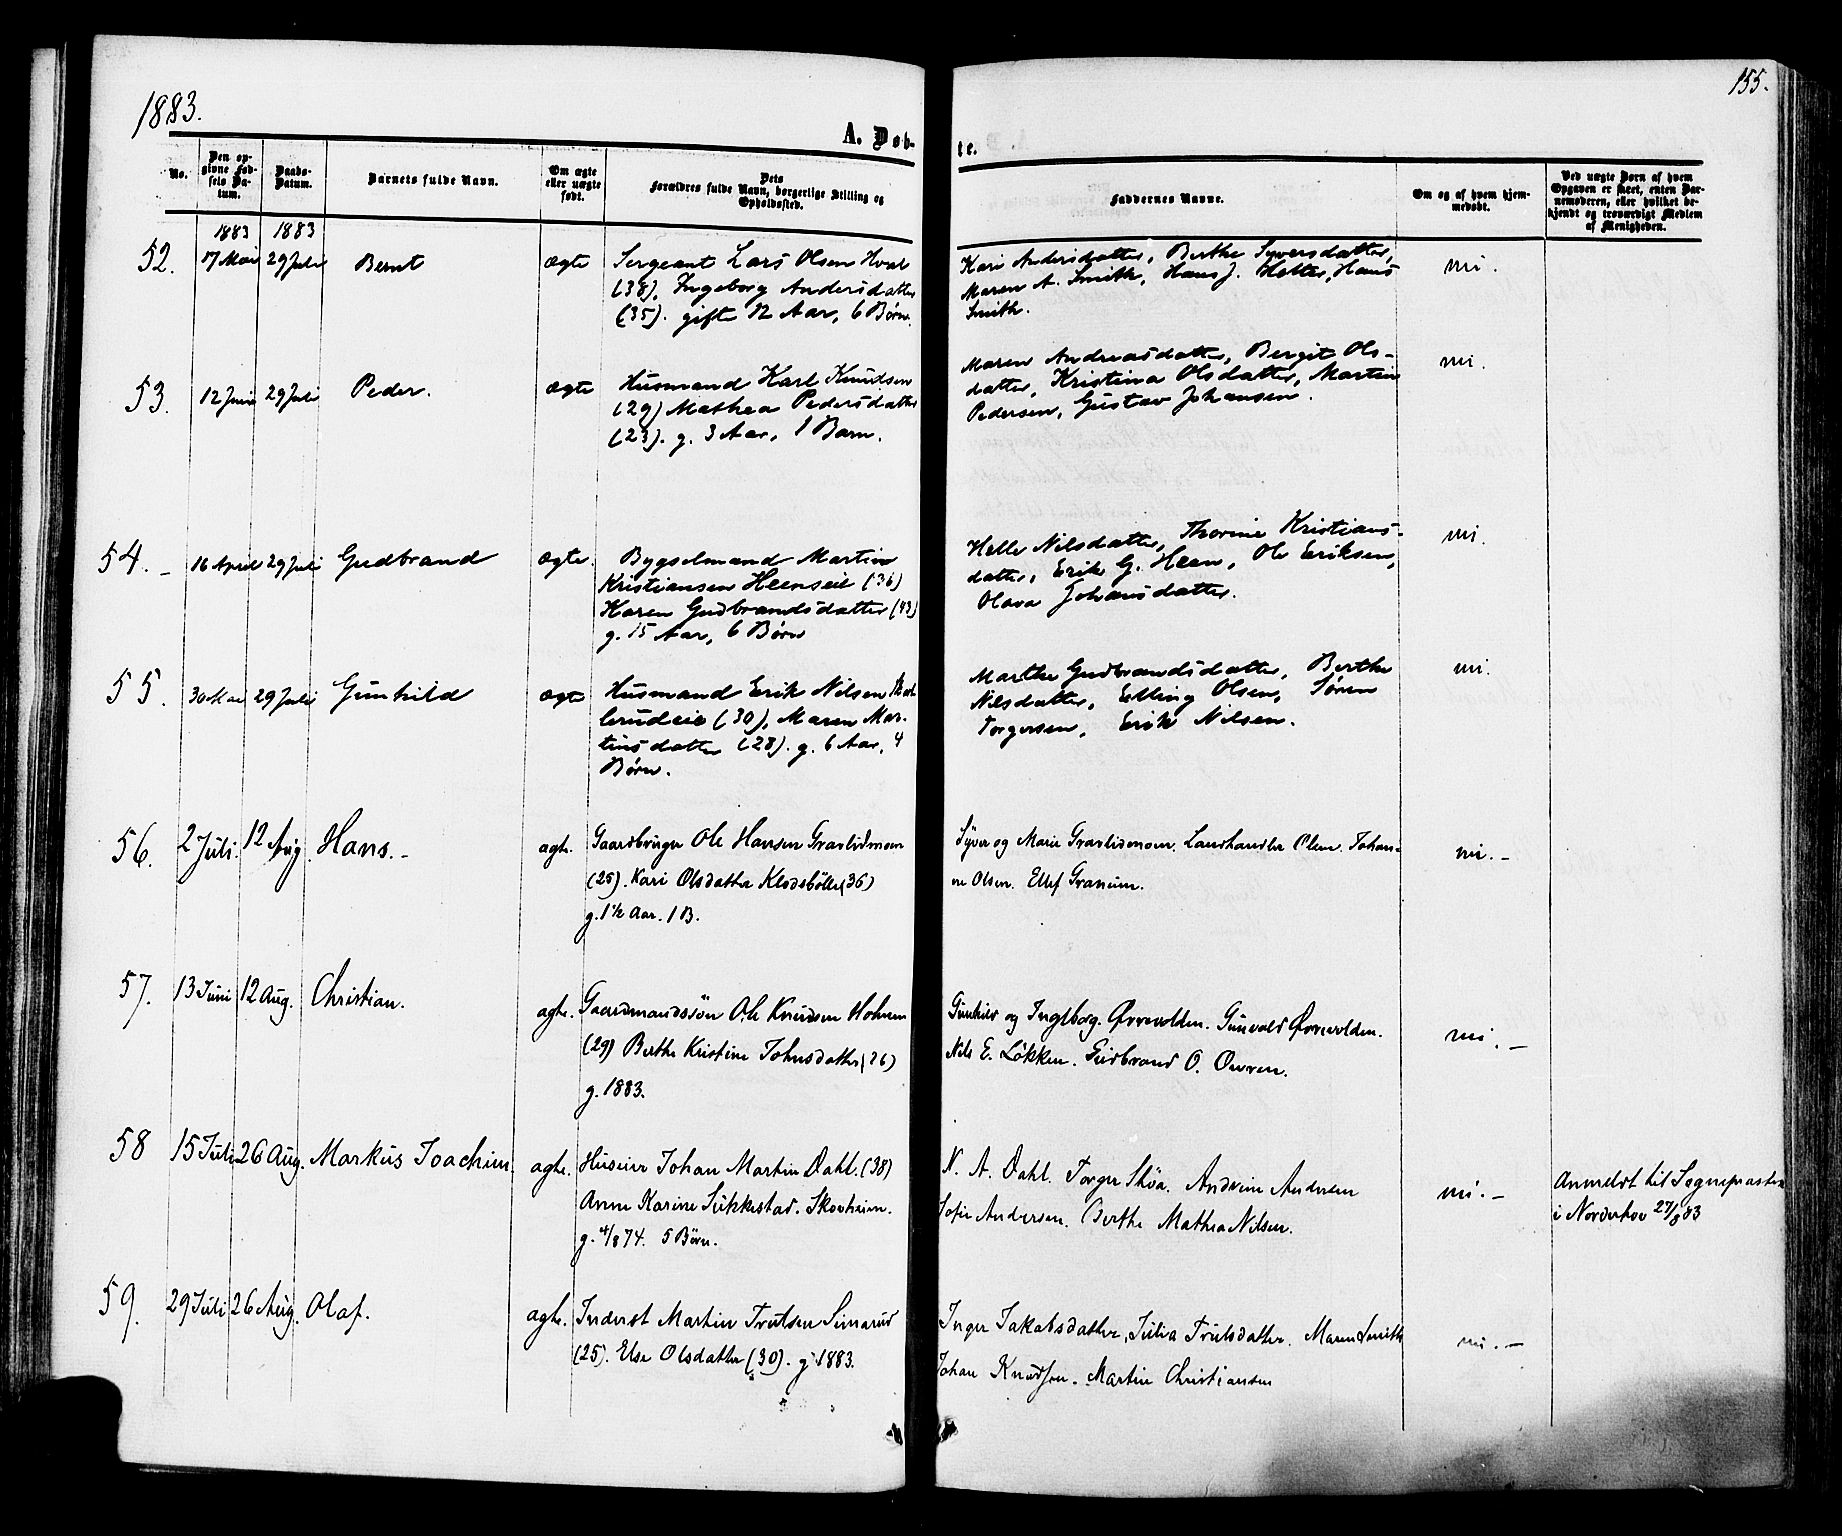 1883.
155.
A. Døb-
te.
No.
Den op-
givne Fød-
sels Da-
tum.
Daabs-
Datum.
Barnets fulde Navn.
Om ægte
eller uægte
født.
Dets
Forældres fulde Navn, borgerlige Stilling og
Opholdssted.
Faddernes Navne.
Om og af hvem hjem-
medøbt.
Ved uægte Børn af hvem
Opgaven er skeet, enten Bar-
nemoderen, eller hvilket be-
kjendt og troværdigt Medlem
af Menigheden.
1883 1883
52. 17 Mai 29 Juli Bernt ægte Sergeant Lars Olsen Hval
(38), Ingeborg Andersdatter
(35). gifte 12 Aar, 6 Børn.
Kari Andersdatter, Berthe Syversdatter,
Maren A. Smith, Hans J. Hatter, Hans
Smith.
ni.
53. 12 Juni 29 Juli Peder. ægte Husmand Karl Knudsen
(29) Mathea Pedersdatter
(23). g. 3 Aar, 1 Barn.
Maren Andreasdatter, Bergit Ols-
datter, Kristina Olsdatter, Martin
Pedersen, Gustav Johansen.
ni.
54. - 16 April 29 Juli Gudbrand ægte. Bygselmand Martin
Kristiansen Heenseie (36)
Karen Gudbrandsdatter (43)
g. 15 Aar, 6 Børn
Helle Nilsdatter, Thorine Kristians-
datter, Erik G. Heen, Ole Eriksen,
Olava Johansdatter.
ni.
55. 30 Mai 29 Juli Gunhild ægte Husmand Erik Nilsen
(30), Maren Mar-
tinsdatter (28). g. 6 Aar, 4
Børn.
Marthe Gudbrandsdatter, Berthe
Nilsdatter, Elling Olsen, Søren
Torgersen, Erik Nilsen.
ni.
56. 2 Juli. 12 Aug. Hans. - agte. Gaardbruger Ole Hansen Gravlidmoen
(25). Kari Olsdatter Klodsbølle (36)
g. 1 1/2 Aar. 1 B.
Syver og Marie Gravlidmoen. Landhandler Olsen. Johan-
ne Olsen. Ellef Granum.
ni. -
57. 13 Juni 12 Aug. Christian. agte. Gaardmandssön Ole Knudsen Holmen
(29) Berthe Kristine Johnsdatter (26)
g. 1883.
Gunhild og Ingeborg. Ørrevolden. Gunvald Ørrevolden.
Nils E. Løkken. Gudbrand O. Oureen.
ni. -
58 15 Juli 26 Aug. Markus Joachim. agte. Huseier Johan Martin Dahl. (38)
Anne Karine Sukkestad. Skovheim.
g. 4/8 74. 5 Børn.
N. A. Dahl. Torger Skøa. Andrine Andersen
Sofie Andersen. Berthe Mathea Nilsen.
ni. -
Anmeldt til Sognepræsten
i Norderhov 27/8 83
59. 29 Juli 26 Aug. Olaf. agte. Inderst Martin Trulsen Simarud
(25). Else Olsdatter (30). g. 1883.
Inger Jakobsdatter, Julia Trulsdatter. Maren Smith
Johan Knudsen. Martin Christiansen
ni. -